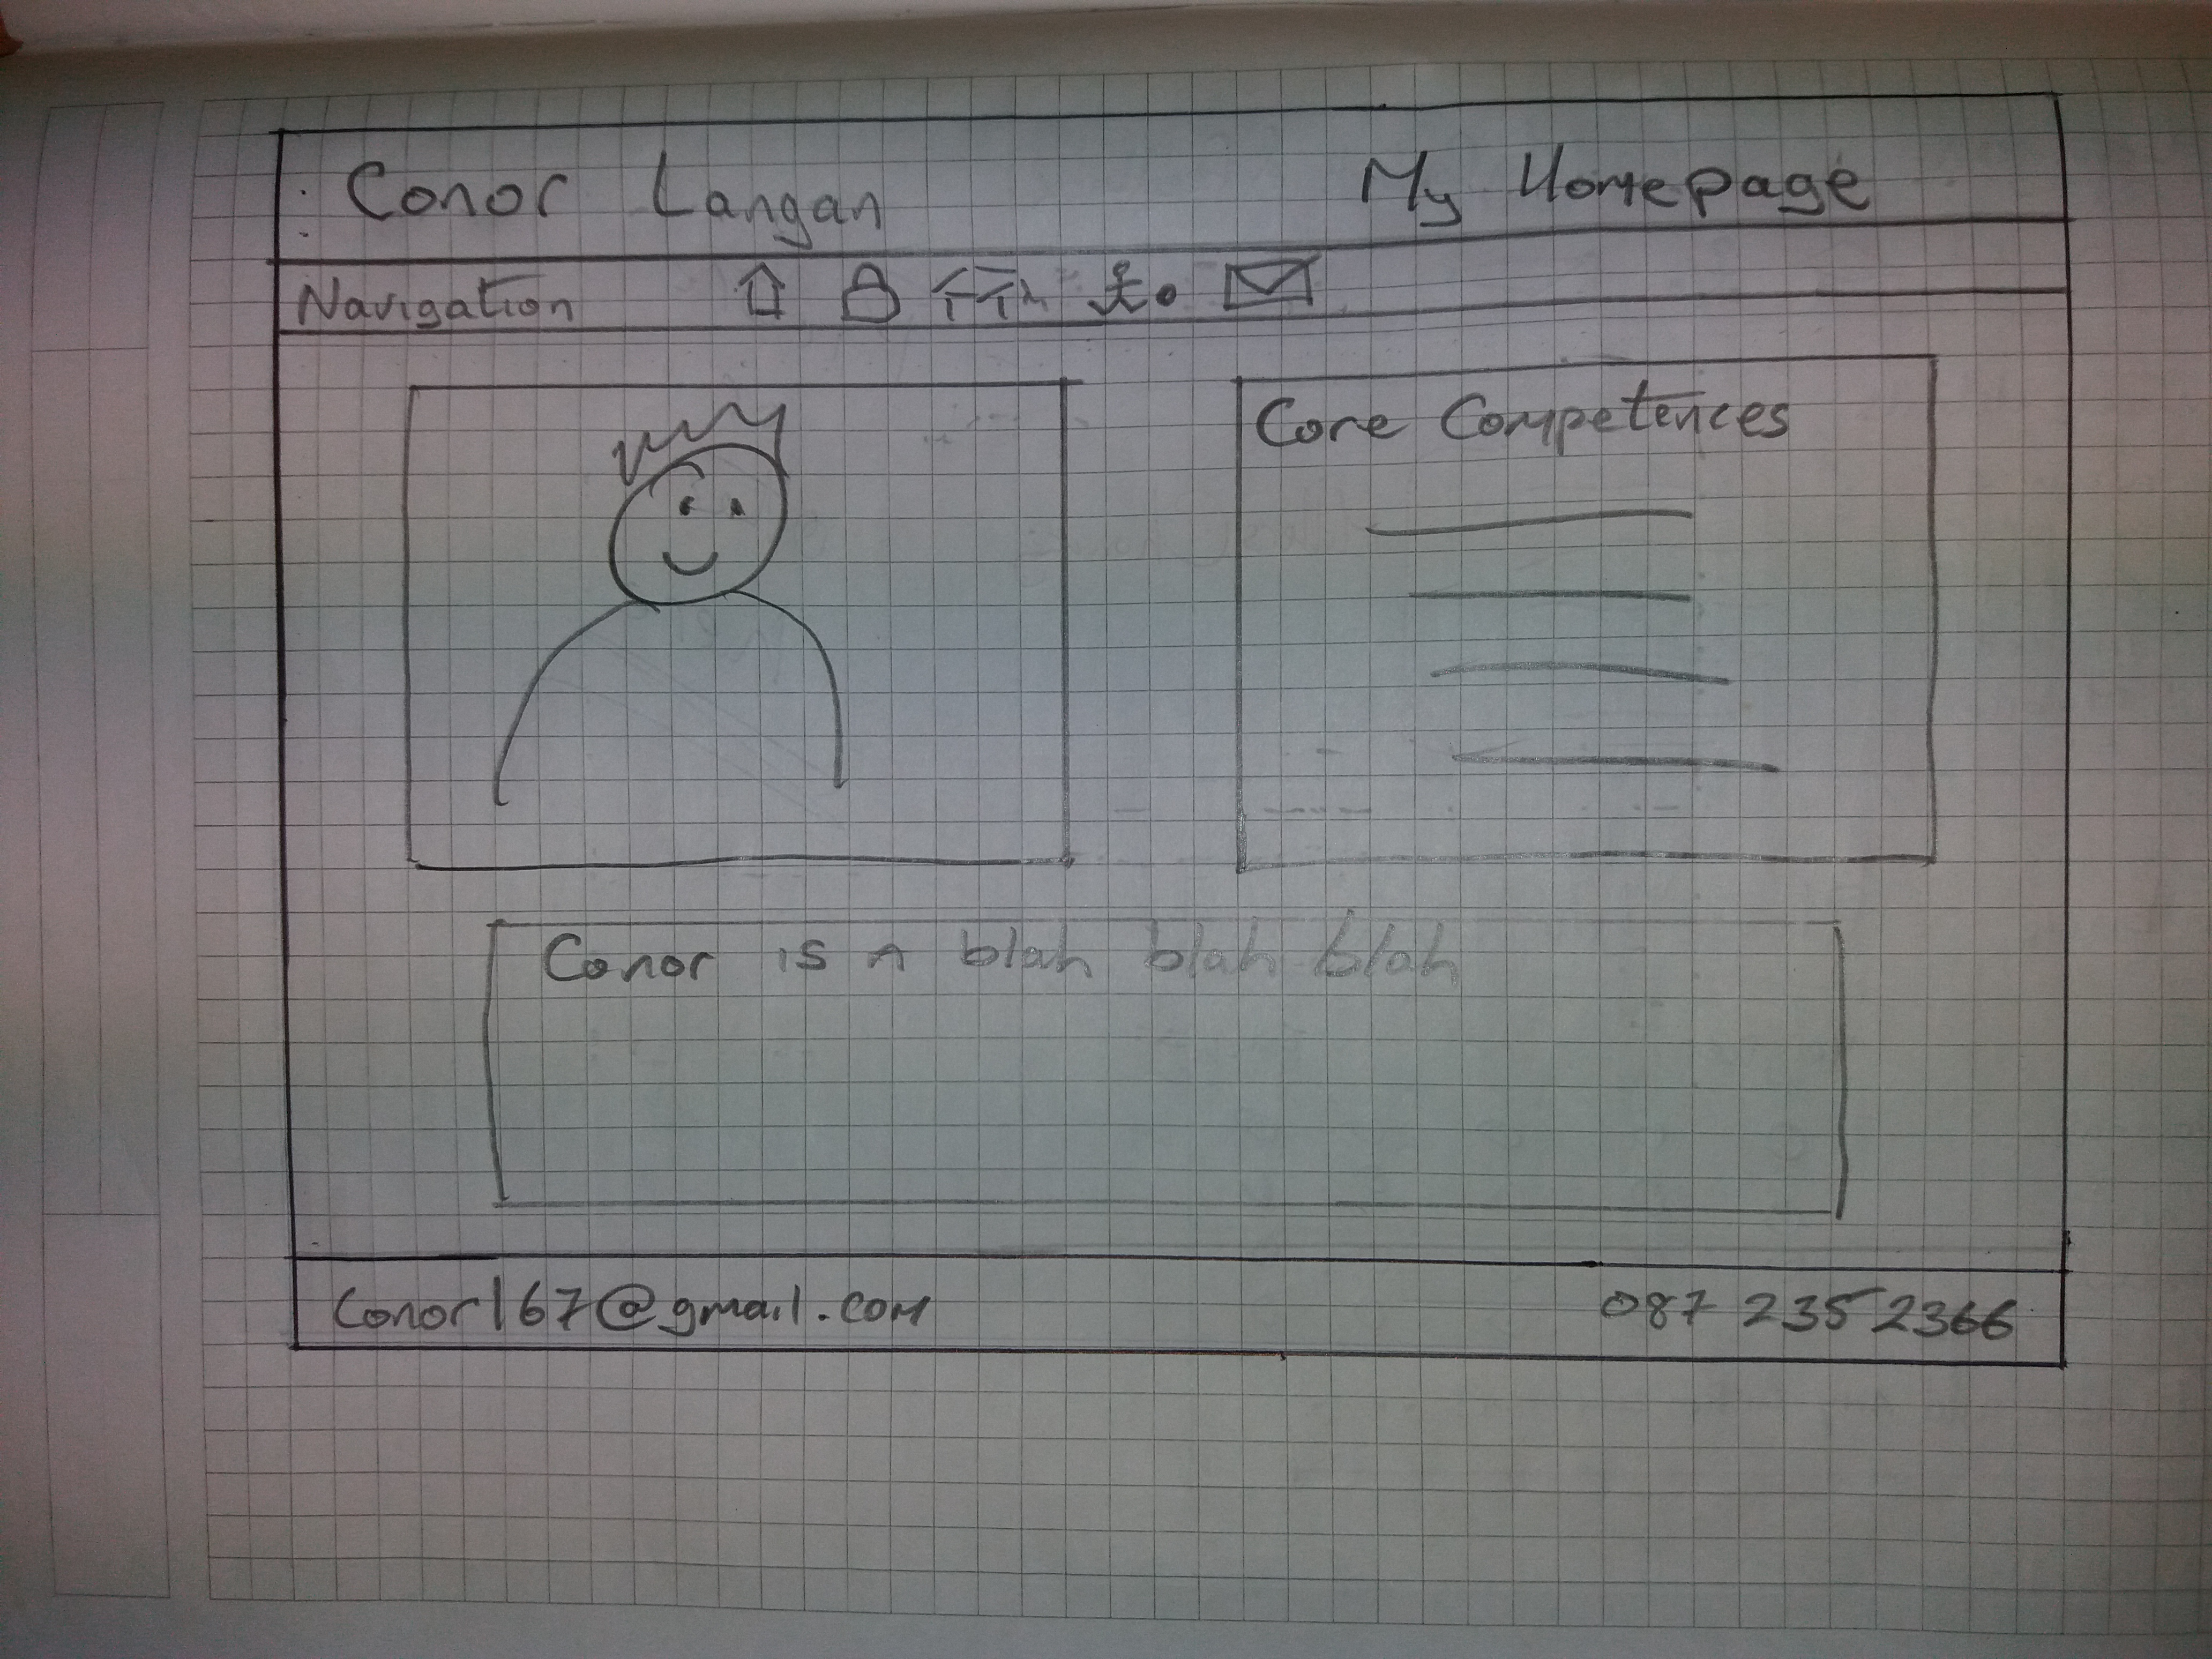 Conor Langan My Homepage
Navigation
Core Competences
Conor is a blah blah blah
Conor167@gmail.com 087 235 2366